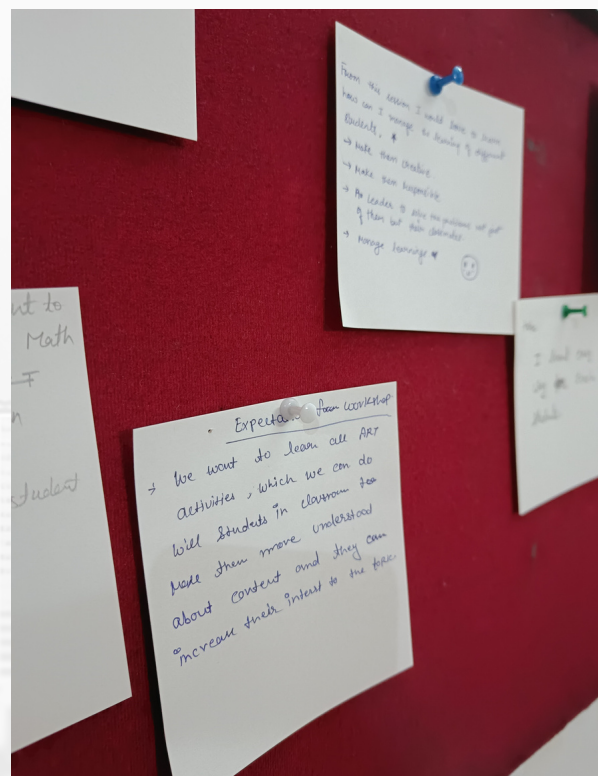 From this session I would love to learn
how can I manage the learning of different
students.
→ Make them creative
→ Make them responsible
→ As leader to solve the problems not just
of them but their
→ Manage learnings
ut to
Math
n
student
I
Expecta from workshop
→ We want to learn all ART
activities, which we can do
will students in classroom too
Make them more understood
about content and they can
increase their interst to the